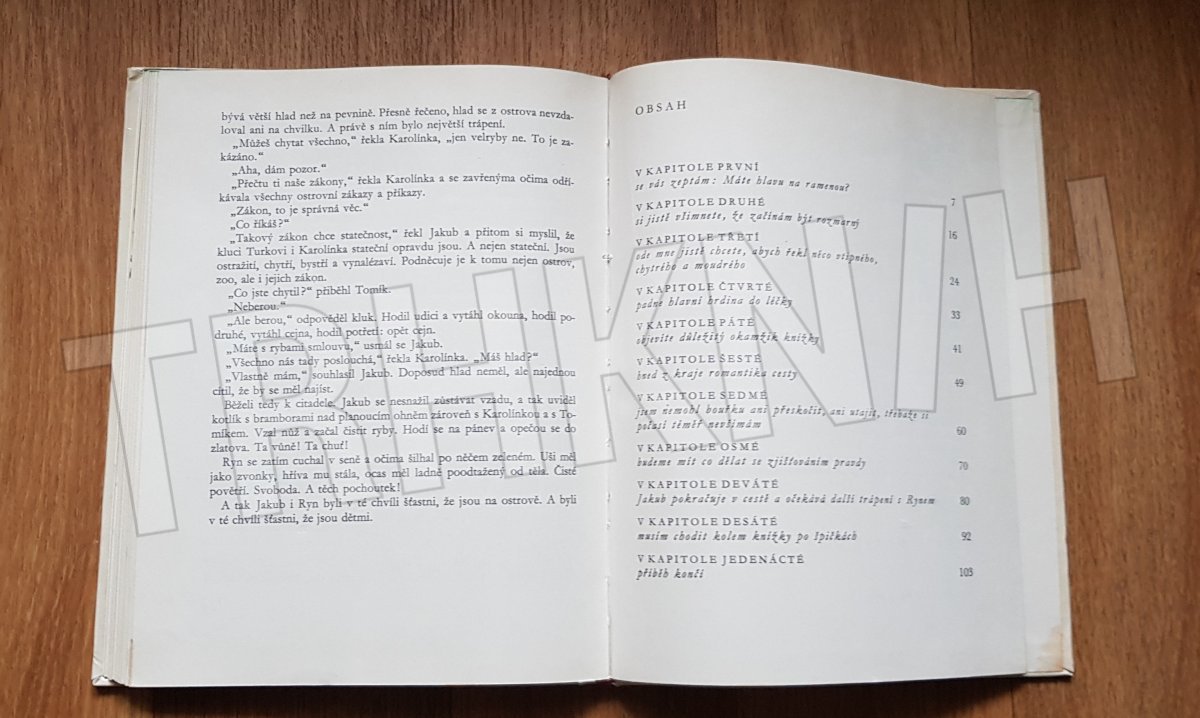 bývá větší hlad než na pevnině. Přesně řečeno, hlad se z ostrova nevzda-
loval ani na chvilku. A právě s ním bylo největší trápení.
„Můžeš chytat všechno,“ řekla Karolínka, „jen velryby ne. To je za-
kázáno.“
„Aha, dám pozor.“
„Přečtu ti naše zákony,“ řekla Karolínka a se zavřenýma očima odří-
kávala všechny ostrovní zákazy a příkazy.
„Zákon, to je správná věc.“
„Co říkáš?“
„Takový zákon chce statečnost,“ řekl Jakub a přitom si myslil, že
kluci Turkovi i Karolínka stateční opravdu jsou. A nejen stateční. Jsou
ostražití, chytří, bystří a vynalézaví. Podněcuje je k tomu nejen ostrov,
zoo, ale i jejich zákon.
„Co jste chytil?“ přiběhl Tomík.
„Neberou.“
„Ale berou,“ odpověděl kluk. Hodil udici a vytáhl okouna, hodil po-
druhé, vytáhl cejna, hodil potřetí: opět cejn.
„Máte s rybami smlouvu,“ usmál se Jakub.
„Všechno nás tady poslouchá,“ řekla Karolínka. „Máš hlad?“
„Vlastně mám,“ souhlasil Jakub. Doposud hlad neměl, ale najednou
cítil, že by se měl najíst.
Běželi tedy k citadele. Jakub se nesnažil zůstávat vzadu, a tak uviděl
kotlík s bramborami nad planoucím ohněm zároveň s Karolínkou a s To-
míkem. Vzal nůž a začal čistit ryby. Hodí se na pánev a opečou se do
zlatova. Ta vůně! Ta chuť!
Ryn se zatím cuchal v seně a očima šilhal po něčem zeleném. Uši měl
jako zvonky, hříva mu stála, ocas měl ladně poodtažený od těla. Čisté
povětří. Svoboda. A těch pochoutek!
A tak Jakub i Ryn byli v té chvíli šťastni, že jsou na ostrově. A byli
v té chvíli šťastni, že jsou dětmi.
OBSAH
V KAPITOLE PRVNÍ
se vás zeptám: Máte hlavu na ramenou? 7
V KAPITOLE DRUHÉ
si jistě všimnete, že začínám být rozmarný 16
V KAPITOLE TŘETÍ
ode mne jistě chcete, abych řekl něco vtipného,
chytrého a moudrého 24
V KAPITOLE ČTVRTÉ
padne hlavní hrdina do léčky 33
V KAPITOLE PÁTÉ
objevíte důležitý okamžik knížky 41
V KAPITOLE ŠESTÉ
hned z kraje romantika cesty 49
V KAPITOLE SEDMÉ
jsem nemohl bouřku ani přeskočit, ani utajit, třebaže si
počasí téměř nevšímám 60
V KAPITOLE OSMÉ
budeme mít co dělat se zjišťováním pravdy 70
V KAPITOLE DEVÁTÉ
Jakub pokračuje v cestě a očekává další trápení s Rynem 80
V KAPITOLE DESÁTÉ
musím chodit kolem knížky po špičkách 92
V KAPITOLE JEDENÁCTÉ
příběh končí 103
TRHKNIH